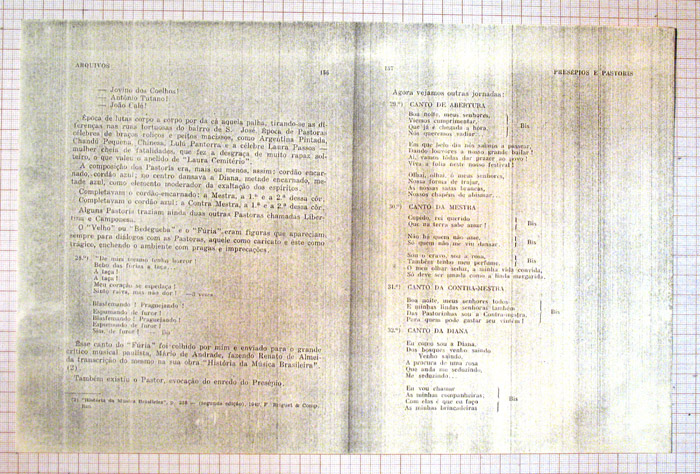 ARQUIVOS 156
— Jovino dos Coelhos!
— Antônio Tatano!
— João Calé!
Época de lutas corpo a corpo por da cá aquela palha, tirando-se as di-
ferenças nas ruas tortuosas do bairro de S. José. Época de Pastoras
célebres de braços roliços e peitos macissos, como Argentina Pintada,
Chandú Pequena, Chinesa, Lulú Panterra e a célebre Laura Passos —
mulher cheia de fatalidades, que fez a desgraça de muito rapaz sol-
teiro, o que valeu o apelido de "Laura Cemitério".
A composição dos Pastoris era, mais ou menos, assim: cordão encar-
nado, cordão azul; no centro dansava a Diana, metade encarnado, me-
tade azul, como elemento moderador da exaltação dos espíritos.
Completavam o cordão-encarnado: a Mestra, a 1.ª e a 2.ª dessa côr.
Completavam o cordão azul: a Contra Mestra, a 1.ª e a 2.ª dessa côr.
Alguns Pastoris traziam ainda duas outras Pastoras chamadas Liber-
tina e Camponesa.
O "Velho" ou "Bedegueba" e o "Fúria" eram figuras que apareciam
sempre para diálogos com as Pastoras, aquele como caricato e êste como
trágico, enchendo o ambiente com pragas e imprecações.
28.ª) "De mim mesmo tenho horror!
Bebo das fúrias a taça...
A taça!
A taça!
Meu coração se espedaça!
Sinto raiva, mas não dor! —3 vezes
Blasfemando! Praguejando!
Espumando de furor!
Blasfemando! Praguejando!
Espumando de furor!
Sou de furor!
Esse canto do "Fúria" foi colhido por mim e enviado para o grande
crítico musical paulista, Mário de Andrade, fazendo Renato de Almei-
da transcrição do mesmo na sua obra "História da Música Brasileira".
(2).
Também existiu o Pastor, evocação do enredo do Presépio.
2) "História da Música Brasileira", p. 238 — (segunda edição), F. Briguiet & Comp.
Rio.
157 PRESÉPIOS E PASTORIS
Agora vejamos outras jornadas:
29.ª) CANTO DE ABERTURA
Boa noite, meus senhores,
Viemos cumprimentar,
Que já é chegada a hora, Bis
Nós queremos vadiar.
Em que belo dia nós saímos a passear,
Dando louvores a nosso grande bailar!
Aí, vamos todas dar prazer ao povo!
Viva a folia neste nosso festival!
Olhai, olhai, ó meus senhores,
Nossa forma de trajar,
As nossas saias brancas,
Nossos chapéus de abismar...
30.ª) CANTO DA MESTRA
Cupido, rei querido
Que na terra sabe amar! Bis
Não há quem não ame,
Só quem não me viu dansar. Bis
Sou o cravo, sou a rosa,
Também tenho meu perfume. Bis
O meu olhar seduz, a minha vida convida,
Só deve ser amada como a linda margarida.
31.ª) CANTO DA CONTRA-MESTRA
Boa noite, meus senhores todos
E minhas lindas senhoras também
Das Pastorinhas sou a Contra-mestra, Bis
Para quem pode gastar seu vintém!
32.ª) CANTO DA DIANA
Eu como sou a Diana,
Dos bosques venho saindo
Venho saindo,
A procura de uma rosa
Que anda me seduzindo,
Me seduzindo...
Eu vou chamar
As minhas companheiras,
Com elas é que eu faço Bis
As minhas brincadeiras